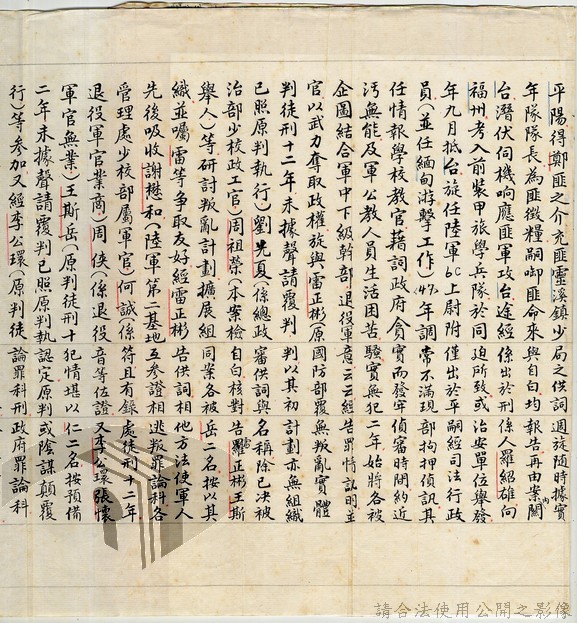 平陽得鄭匪之介充匪靈溪鎮少
年隊隊長為匪徵糧嗣卸匪命來
台潛伏伺機响應匪軍攻台途經
福州考入前裝甲旅學兵隊於同
年九月抵台旋任陸軍6C上尉附
員(並任緬甸游擊工作)47年調
任情報學校教官藉詞政府貪
污無能及軍公教人員生活困苦
企圖結合軍中下級幹部退役軍
官以武力奪取政權旋與雷正彬(原
判徒刑十二年未據聲請覆判
已照原判執行)劉先夏(係總政
治部少校政工官)周祖榮(本案檢
舉人)等研討叛亂計劃擴展組
織並囑雷等爭取友好經雷正彬
先後吸收謝懋和(陸軍第二基地
管理處少校部屬軍官)何誠(係
退役軍官業商)周俠(係退役
軍官無業)王斯岳(原判徒刑十
二年未據聲請覆判已照原判執
行)等參加又經李公環(原判徒
局之供詞
與自白均
係出於刑
迫所致或
僅出於乎
常不滿現
實而發牢
騷實無犯
意云云經
國防部覆
判以其初
審供詞與
自白核對
同案各被
告供詞相
互參證相
符且有錄
音等佐證
犯情堪以
認定原判
論罪科刑
週旋隨時據實
報告再由案內關
係人羅紹雄向
治安單位舉發
嗣經司法行政
部拘押偵訊其
偵審時間約近
二年始將各被
告罪情訊明並
無叛亂實體
計劃亦無組織
名稱除已決被
告雷正彬王斯
岳二名按以其
他方法使軍人
逃叛罪論科各
處徒刑十二年
又李公環張懷
仁二名按預備
或陰謀顛覆
政府罪論科
請合法使用公開之影像